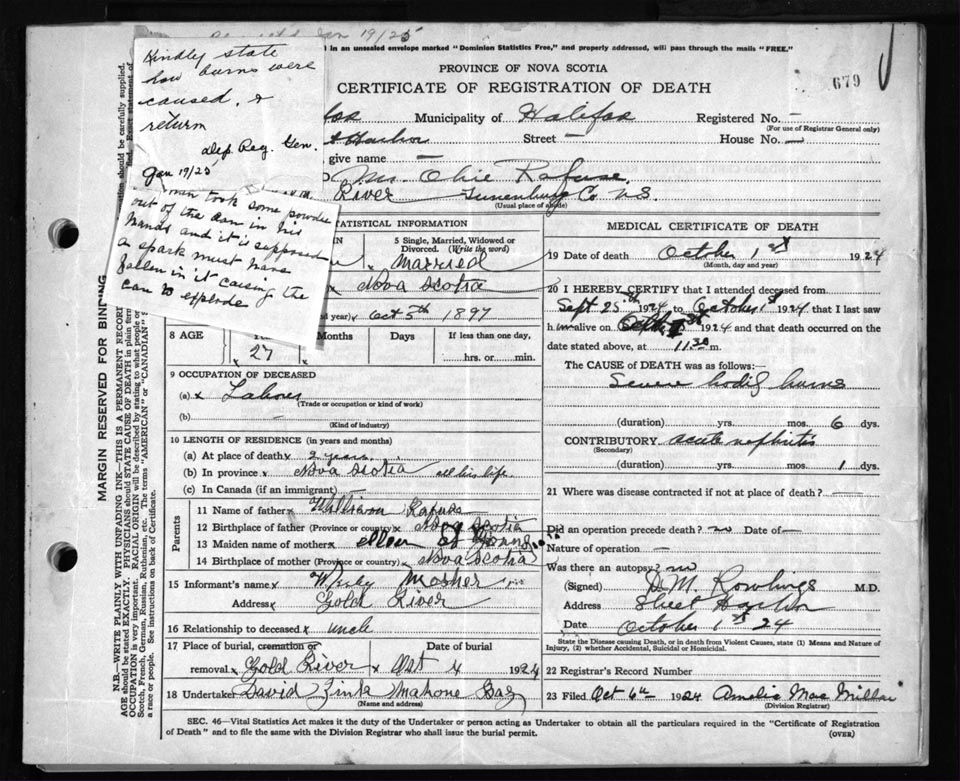 19/25
d in an unsealed envelope marked "Dominion Statistics Free," and properly addressed, will pass through the mails "FREE."
Kindly state
how burns were
caused, &
return
Dep. Reg. Gen.
Jan 19/25
man took some powder
out of the can in his
hands and it is supposed
a spark must have
fallen in it causing the
can to explode
PROVINCE OF NOVA SCOTIA
679
CERTIFICATE OF REGISTRATION OF DEATH
Municipality of Halifax Registered No. –
(For use of Registrar General only)
t Harbor Street – House No. –
give name –
Mr. Obie Rafuse,
River Lunenburg Co N.S.
(Usual place of abode)
STATISTICAL INFORMATION
5 Single, Married, Widowed or
Divorced. (Write the word)
x Married
x Nova Scotia
year) x Oct 5th 1897
8 AGE Months Days If less than one day,
x 27 hrs. or min.
9 OCCUPATION OF DECEASED
(a) x Labour
(Trade or occupation or kind of work)
(b) –
(Kind of industry)
10 LENGTH OF RESIDENCE (in years and months)
(a) At place of death x 2 years
(b) In province x Nova Scotia all his life
(c) In Canada (if an immigrant) –
Parents
11 Name of father x William Rafuse
12 Birthplace of father (Province or country) x Nova Scotia
13 Maiden name of mother x
14 Birthplace of mother (Province or country) x Nova Scotia
15 Informant's name x Mosher
Address x Gold River
16 Relationship to deceased x uncle
17 Place of burial, cremation or Date of burial
removal x Gold River x Oct 4 1924
18 Undertaker David Zink Mahone Bay
(Name and address)
MEDICAL CERTIFICATE OF DEATH
19 Date of death October 1st 1924
(Month, day and year)
20 I HEREBY CERTIFY that I attended deceased from
Sept 25th 1924 to October 1st 1924 that I last saw
him alive on 1924 and that death occurred on the
date stated above, at 11.30 m.
The CAUSE OF DEATH was as follows:—
Severe bodily burns
(duration) yrs. mos. 6 dys.
CONTRIBUTORY acute nephritis
(Secondary)
(duration) yrs. mos. 1 dys.
21 Where was disease contracted if not at place of death? –
Did an operation precede death? no Date of –
Nature of operation –
Was there an autopsy? no
(Signed) D. M. Rowlings M.D.
Address Sheet Harbor
Date October 1st 24
State the Disease causing Death, or in death from Violent Causes, state (1) Means and Nature of
Injury, (2) whether Accidental, Suicidal or Homicidal.
22 Registrar's Record Number
23 Filed Oct 6th 1924 Amelia MacMillan
(Division Registrar)
SEC. 46—Vital Statistics Act makes it the duty of the Undertaker or person acting as Undertaker to obtain all the particulars required in the "Certificate of Registration
of Death" and to file the same with the Division Registrar who shall issue the burial permit.
(OVER)
MARGIN RESERVED FOR BINDING
N.B.—WRITE PLAINLY WITH UNFADING INK—THIS IS A PERMANENT RECORD
should be carefully supplied.
AGE should be stated EXACTLY. PHYSICIANS should state CAUSE OF DEATH in plain
OCCUPATION is very important. RACIAL ORIGIN will be described by stating to what people or
Scotch, French, German, Russian, Ruthenian, etc. The terms "AMERICAN" or "CANADIAN"
a race or people. See instructions on back of Certificate.